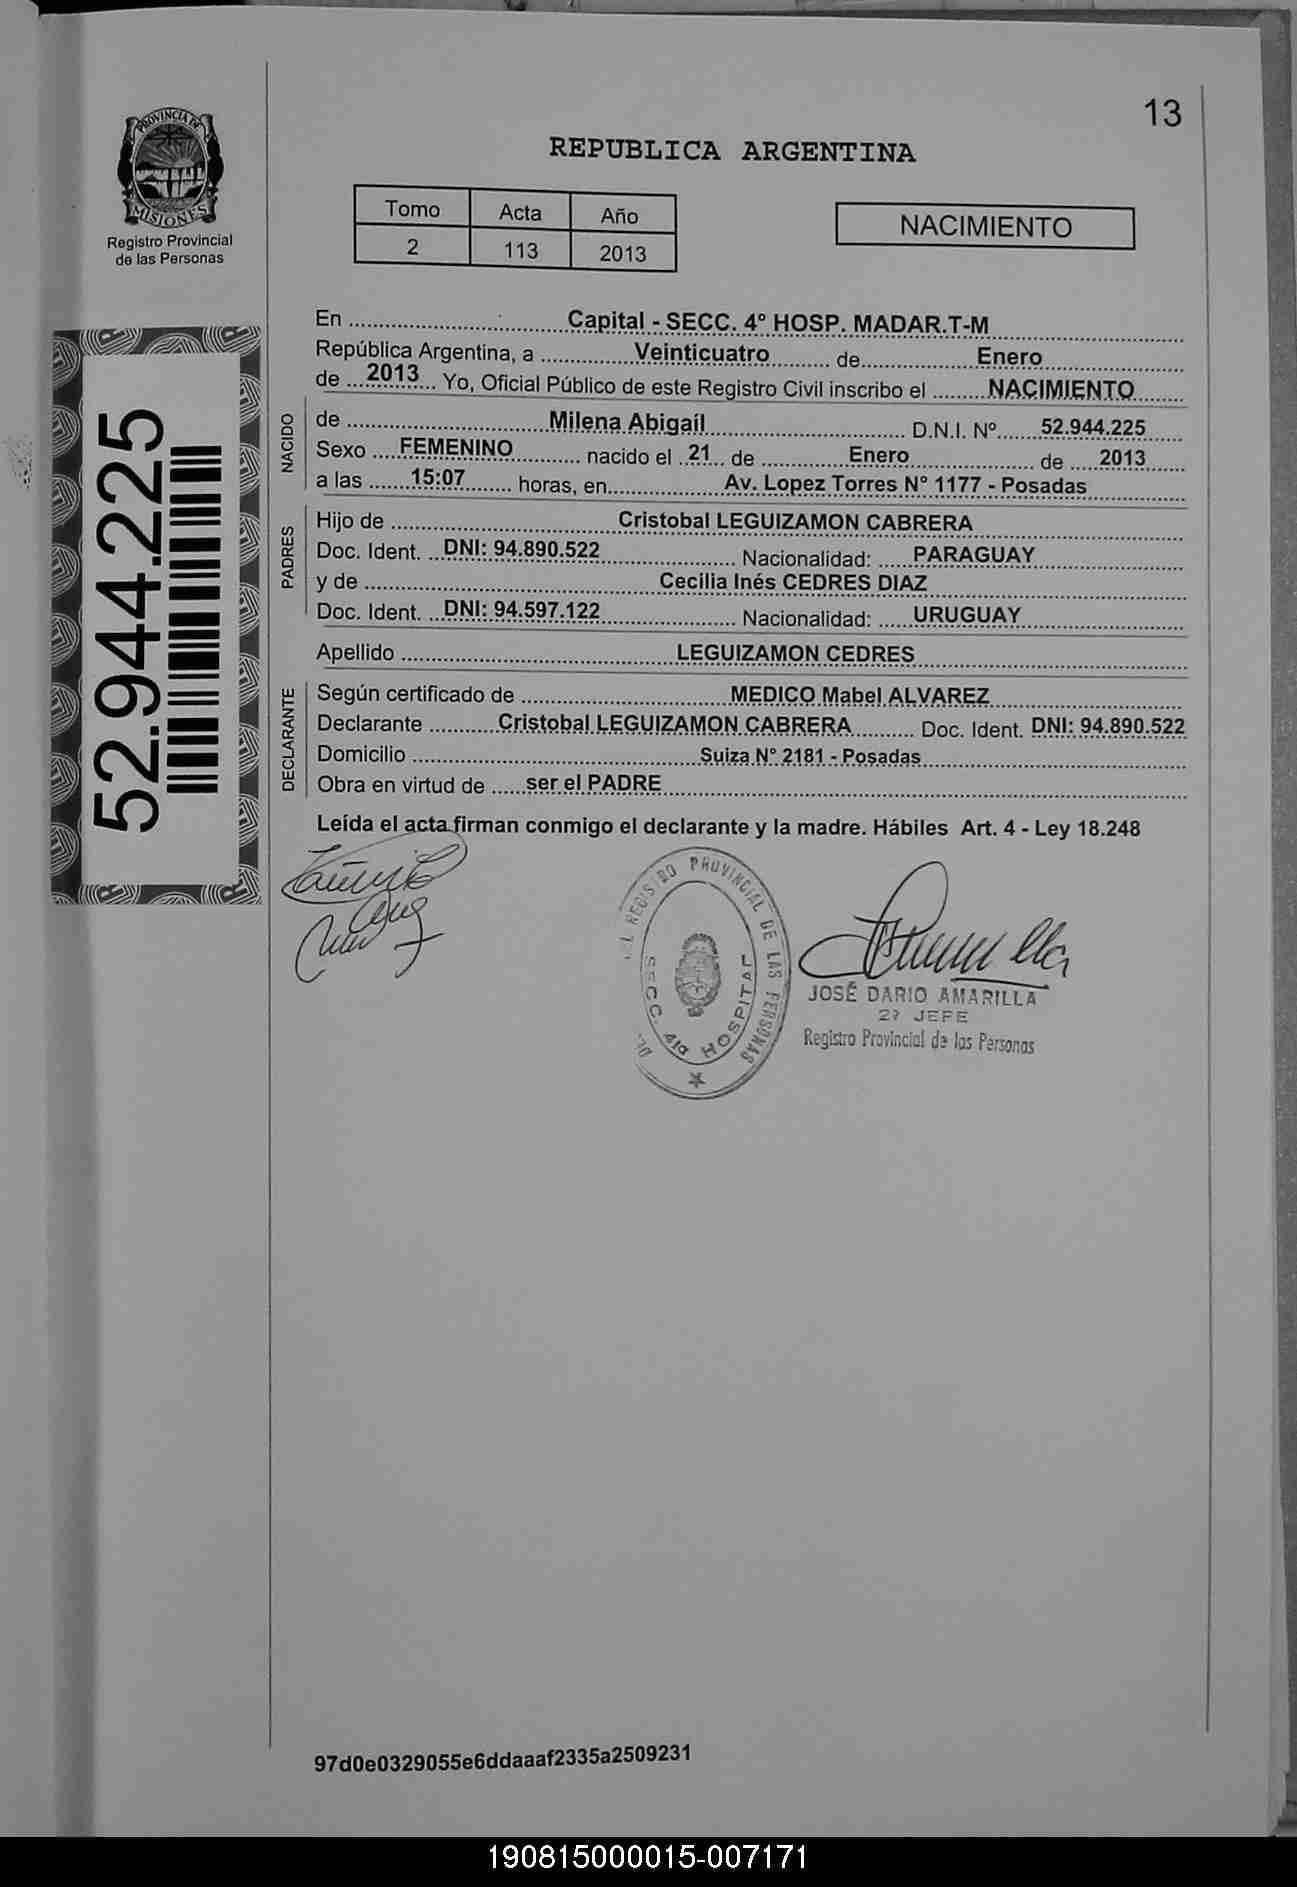 13
PROVINCIA DE
MISIONES
Registro Provincial
de las Personas
REPUBLICA ARGENTINA
Tomo Acta Año
2 113 2013
NACIMIENTO
52.944.225
En Capital - SECC. 4° HOSP. MADAR.T-M
República Argentina, a Veinticuatro de Enero
de 2013 Yo, Oficial Público de este Registro Civil inscribo el NACIMIENTO
NACIDO
de Milena Abigaíl D.N.I. Nº 52.944.225
Sexo FEMENINO nacido el 21 de Enero de 2013
a las 15:07 horas, en Av. Lopez Torres N° 1177 - Posadas
PADRES
Hijo de Cristobal LEGUIZAMON CABRERA
Doc. Ident. DNI: 94.890.522 Nacionalidad: PARAGUAY
y de Cecilia Inés CEDRES DIAZ
Doc. Ident. DNI: 94.597.122 Nacionalidad: URUGUAY
Apellido LEGUIZAMON CEDRES
DECLARANTE
Según certificado de MEDICO Mabel ALVAREZ
Declarante Cristobal LEGUIZAMON CABRERA Doc. Ident. DNI: 94.890.522
Domicilio Suiza N° 2181 - Posadas
Obra en virtud de ser el PADRE
Leída el acta firman conmigo el declarante y la madre. Hábiles Art. 4 - Ley 18.248
REGISTRO PROVINCIAL DE LAS PERSONAS
SECC. 4ta HOSPITAL
JOSÉ DARIO AMARILLA
2º JEFE
Registro Provincial de las Personas
97d0e0329055e6ddaaaf2335a2509231
190815000015-007171